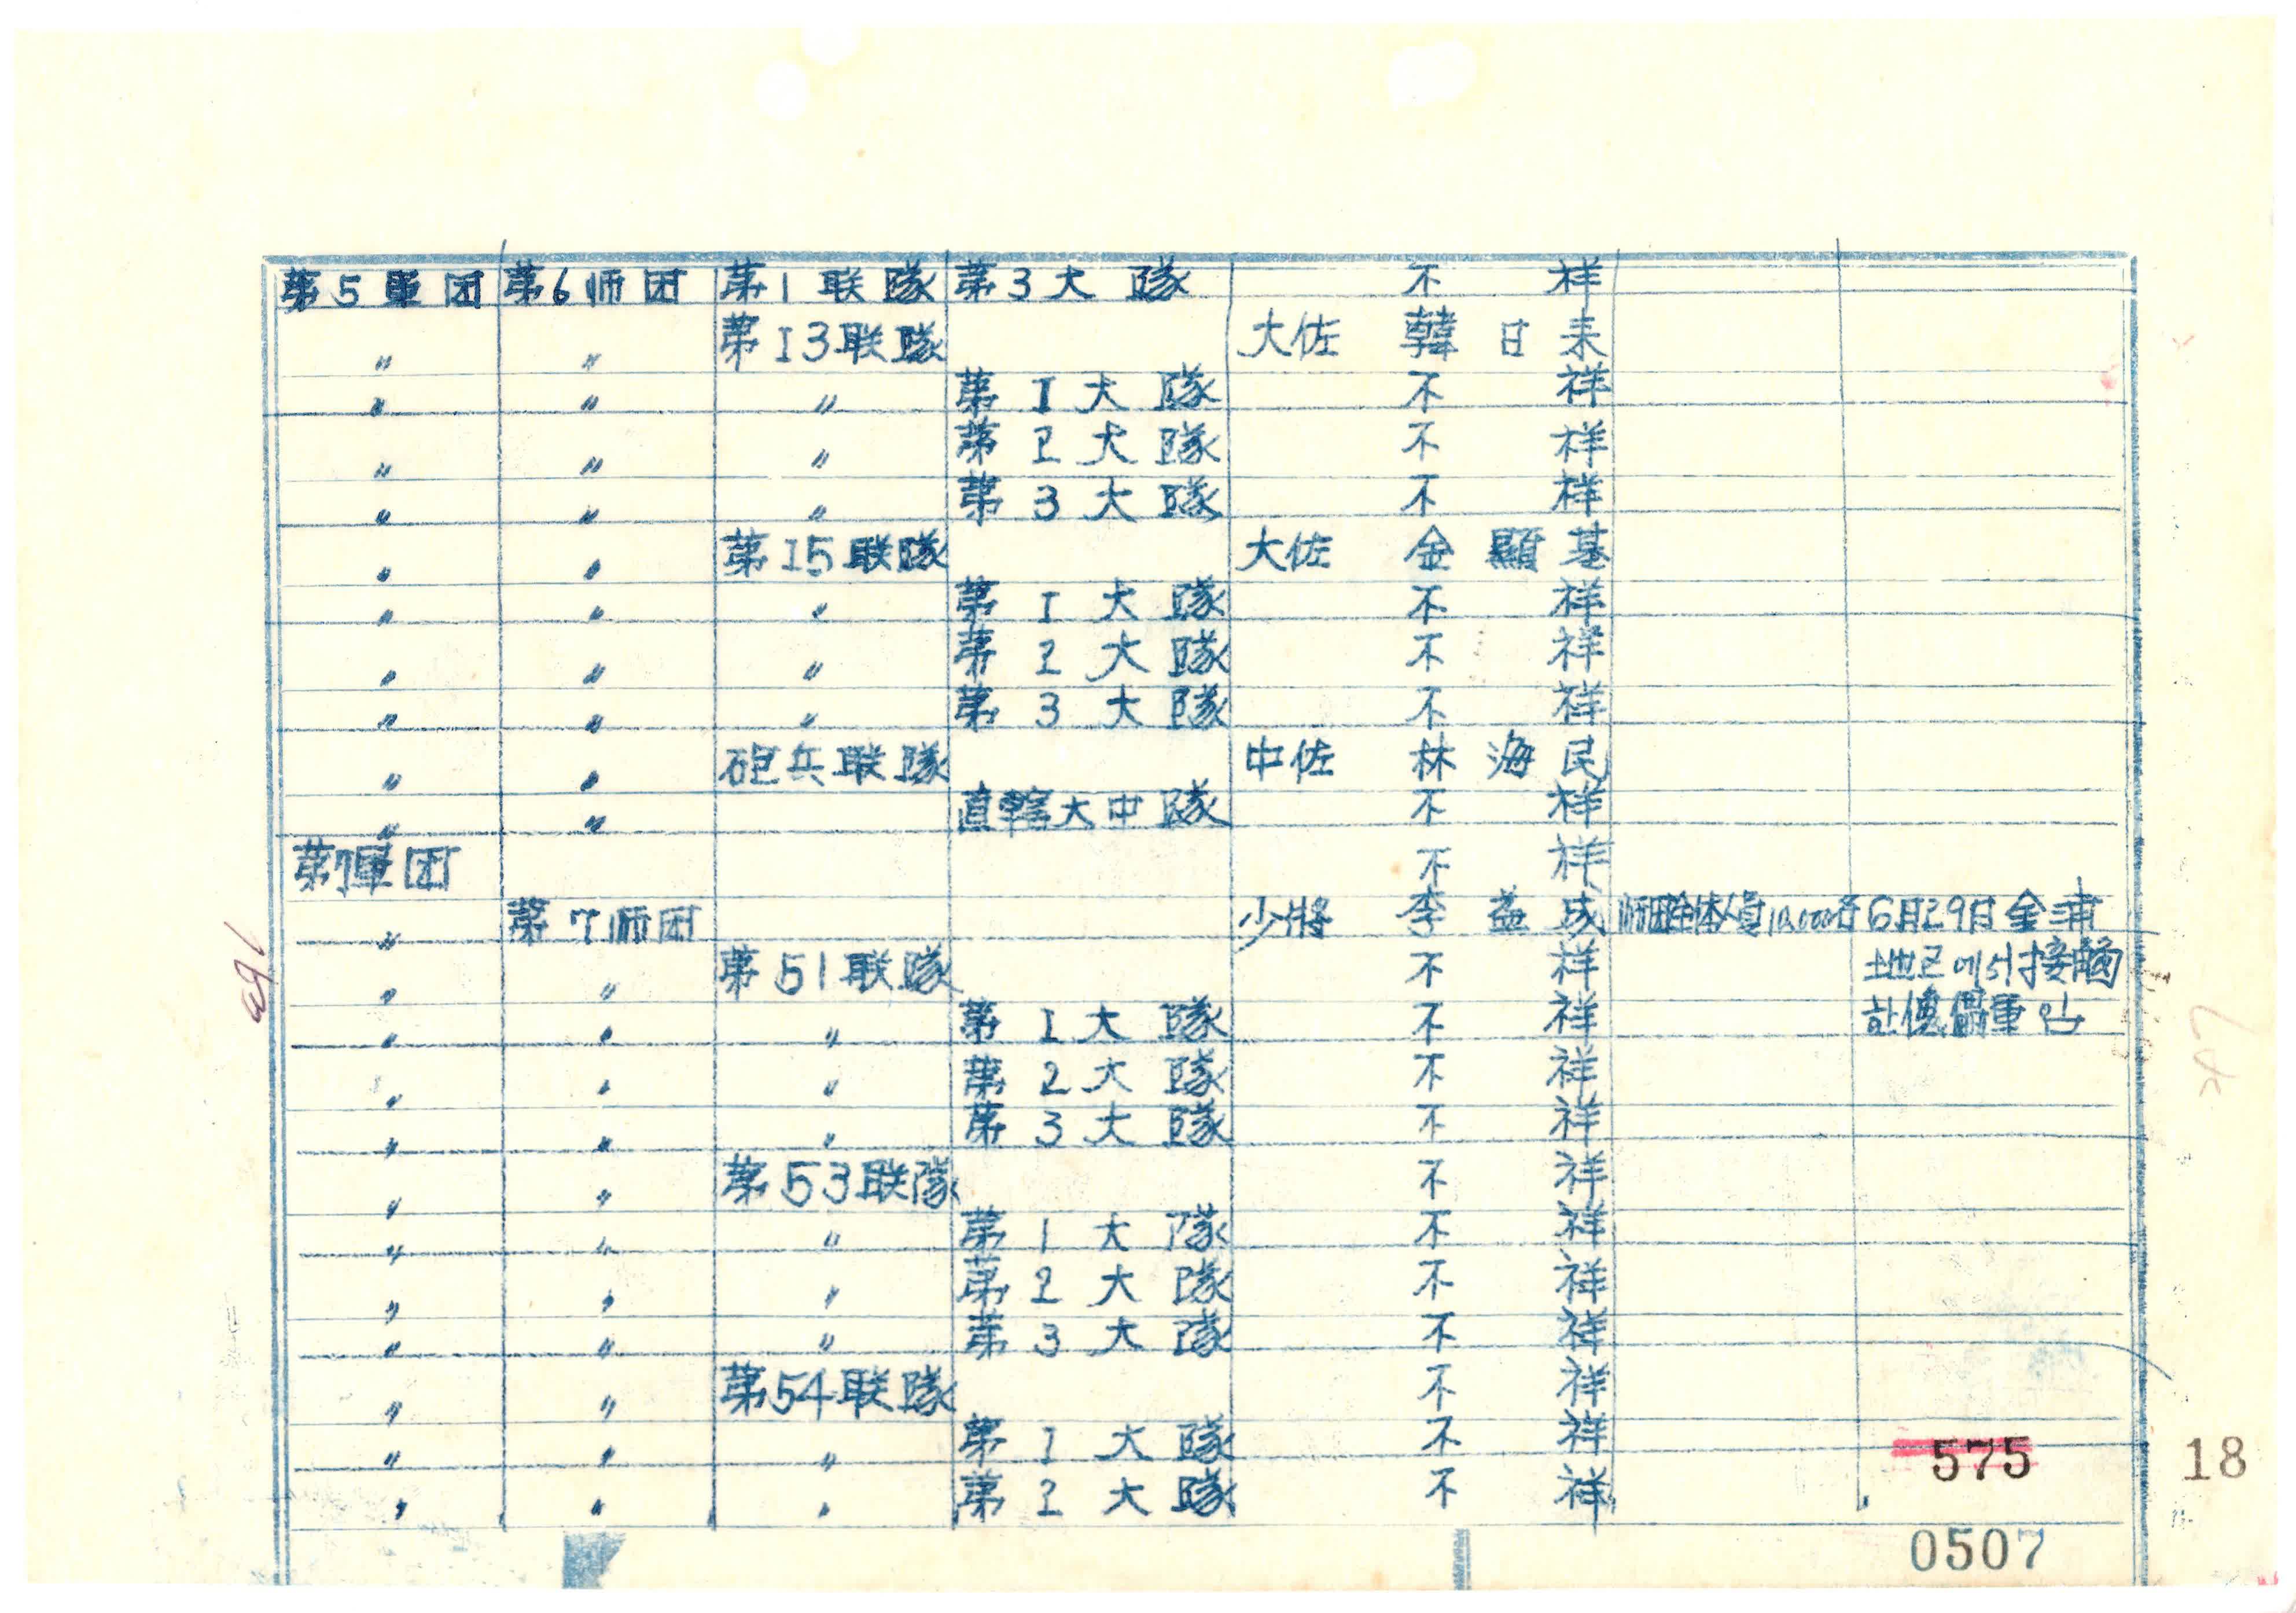 第5軍団 第6师団 第1联隊 第3大隊 不祥
〃 〃 第13联隊 大佐 韓日来
〃 〃 〃 第1大隊 不祥
〃 〃 〃 第2大隊 不祥
〃 〃 〃 第3大隊 不祥
〃 〃 第15联隊 大佐 金顯基
〃 〃 〃 第1大隊 不祥
〃 〃 〃 第2大隊 不祥
〃 〃 〃 第3大隊 不祥
〃 〃 砲兵联隊 中佐 林海民
〃 〃 直轄大中隊 不祥
第7軍团 不祥
〃 第7师团 少将 李益成 师团全体人員10,000名 6月29日金浦
〃 〃 第51联隊 不祥 地区에서接触
〃 〃 〃 第1大隊 不祥 한傀儡軍임
〃 〃 〃 第2大隊 不祥
〃 〃 〃 第3大隊 不祥
〃 〃 第53联隊 不祥
〃 〃 〃 第1大隊 不祥
〃 〃 〃 第2大隊 不祥
〃 〃 〃 第3大隊 不祥
〃 〃 第54联隊 不祥
〃 〃 〃 第1大隊 不祥
〃 〃 〃 第2大隊 不祥
163
575
18
0507